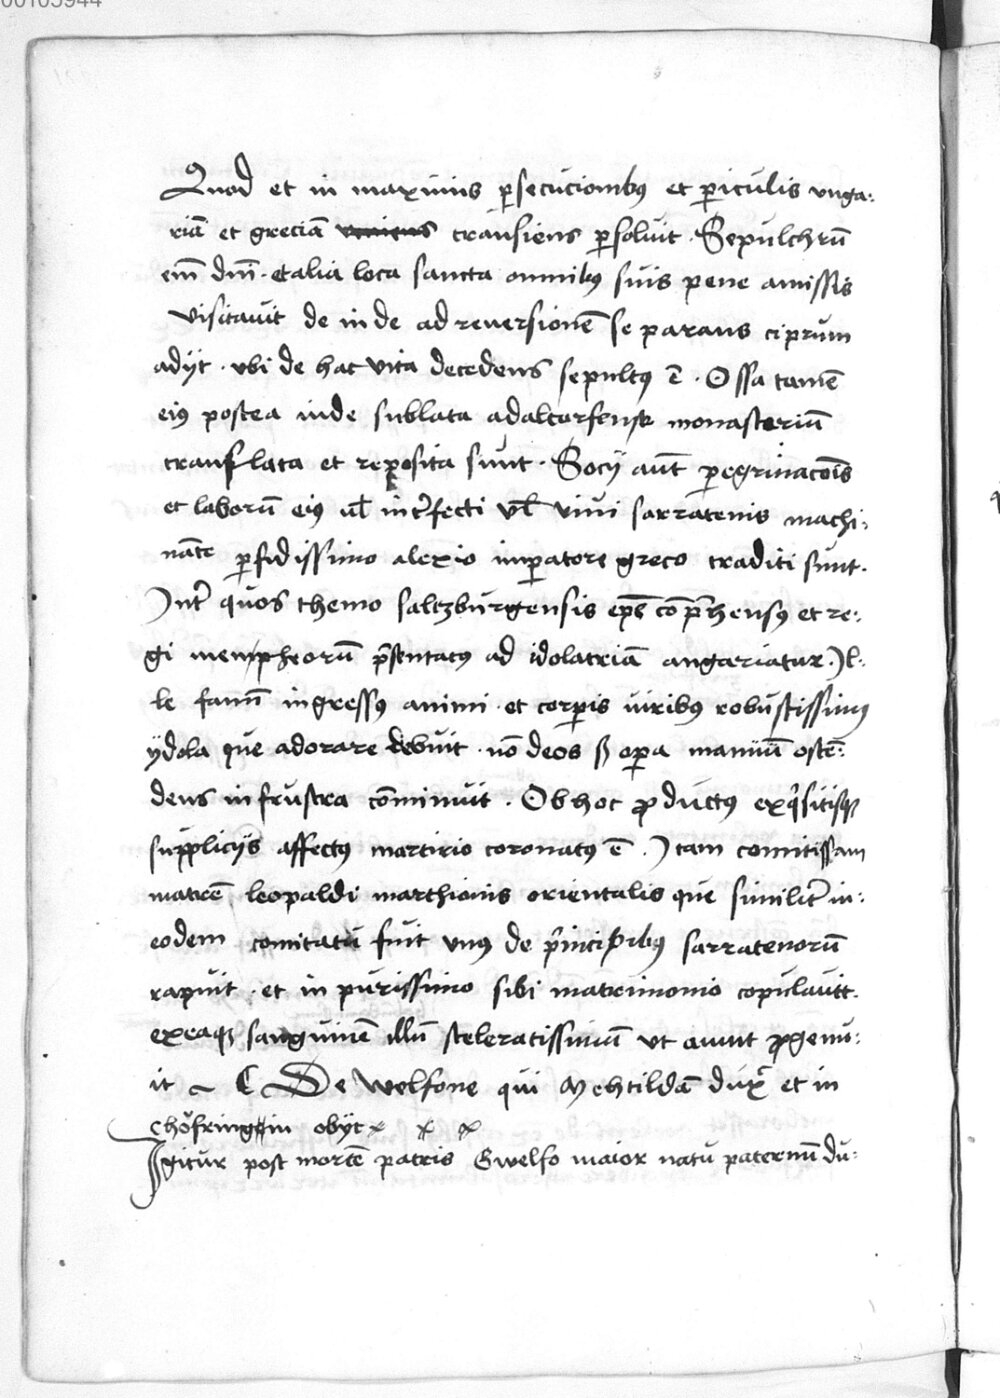 00105944
Quod et in maximis ꝑsecucionibꝯ et ꝑiculis vnga⸗
riā et greciā veniens transiens ꝑsoluit . Sepulchrū
em̄ dn̄i . et alia loca sancta omnibꝯ suis pene amissis
visitauit de inde ad reuersionē se parans ciprum
adijt . vbi de hac vita decedens sepultꝯ ē . Ossa tamē
eiꝯ postea inde sublata ad altorfense monasteriū
translata et reposita sunt . Socij aūt ꝑegrinacōis
et laborū eiꝯ ul̄ int̄fecti vl̄ viui sarracenis machi⸗
nāte ꝑfidissimo alexio imꝑatore greco traditi sunt .
Int̄ quos themo saltzburgensis ep̄s cōp̄hensꝯ et re⸗
gi mempheorū p̄sentatus ad idolatriā angariatur . Il⸗
le fanū ingressꝯ animi . et corꝑis uiribꝯ robustissimꝯ
ydola que adorare debuit . nō deos ꝫ oꝑa manuū ostē⸗
dens in frustra cōminuit . Ob hoc ꝓductꝯ exq̄sitisqꝫ
supplicijs affectꝯ martirio coronatꝯ ē . Itam comitissam
matrē leopaldi marchionis orientalis que similit̄ in⸗
eodem comitatu fuit vnꝯ de p̄ncipibꝯ sarracenorū
rapuit . et in purissimo sibi matrimonio copulauit .
ex eaqꝫ sanguinē illū sceleratissimū ut aiunt ꝓgenu⸗
it ~ ¶ De Welfone qui Mehtildā dux̄ et in
chofringin obijt
Igitur post mortē patris Gwelfo maior natu paternū du⸗